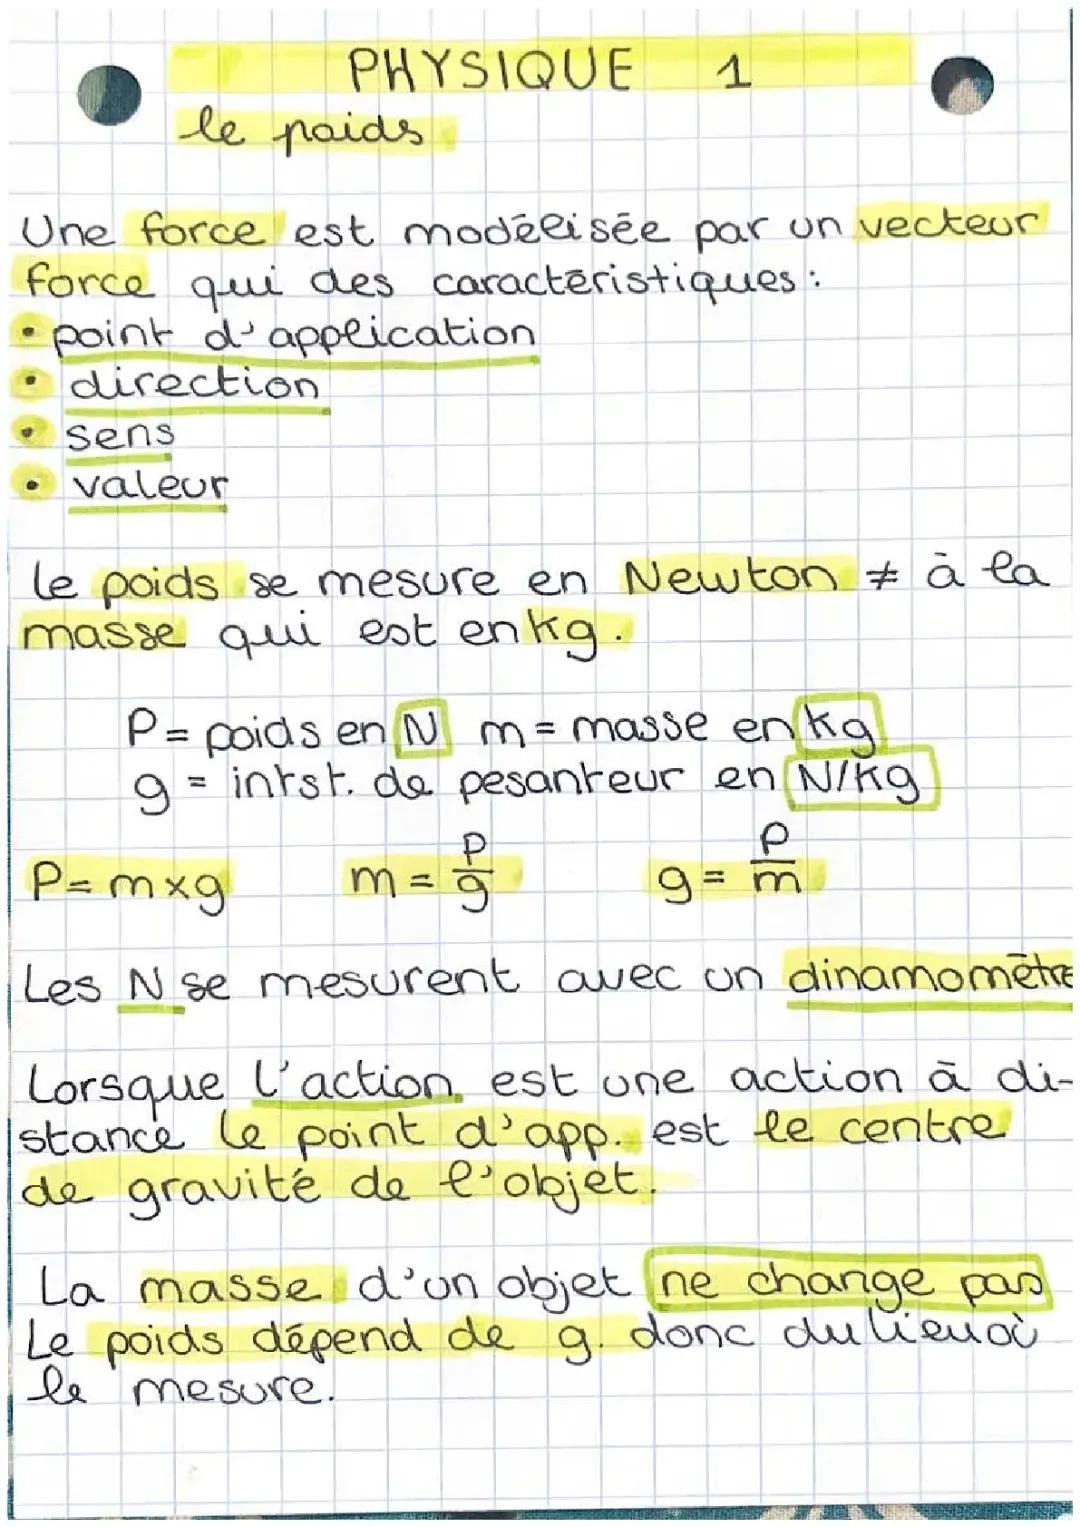 PHYSIQUE 1
le poids
Une force est modélisée par un vecteur
force qui des caractéristiques :
• point d'application
• direction
• sens
• valeur
le poids se mesure en Newton ≠ à la
masse qui est en kg.
P = poids en N m = masse en kg
g = intst. de pesanteur en N/kg
P = m x g m = P/g g = P/m
Les N se mesurent avec un dinamomètre
Lorsque l'action est une action à di-
stance le point d'app. est le centre
de gravité de l'objet.
La masse d'un objet ne change pas
Le poids dépend de g. donc du lieu où
le mesure.